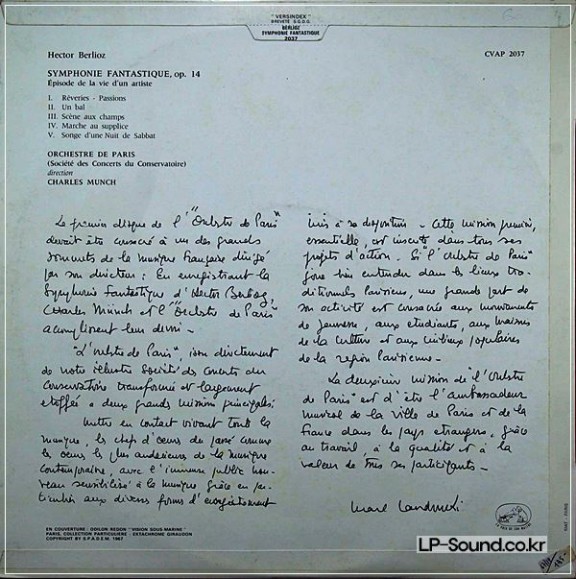 "VERSINDEX"
BREVETÉ S.G.D.G.
BERLIOZ
SYMPHONIE FANTASTIQUE
2037
Hector Berlioz
CVAP 2037
SYMPHONIE FANTASTIQUE, op. 14
Épisode de la vie d'un artiste
I. Rêveries - Passions
II. Un bal
III. Scène aux champs
IV. Marche au supplice
V. Songe d'une Nuit de Sabbat
ORCHESTRE DE PARIS
(Société des Concerts du Conservatoire)
direction
CHARLES MUNCH
Le premier disque de l'"Orchestre de Paris"
devait être consacré à un des grands
sommets de la musique française dirigé
par son directeur : En enregistrant la
Symphonie Fantastique d'Hector Berlioz,
Charles Münch et l'"Orchestre de Paris"
accomplissent leur devoir -
"L'orchestre de Paris", issu directement
de notre illustre Société des Concerts du
Conservatoire transformé et largement
étoffée a deux grandes missions principales:
Mettre en contact vivant toute la
musique, les chefs d'oeuvre du passé comme
les oeuvres les plus audacieuses de la musique
contemporaine, avec l'immense public nou-
veau sensibilisé à la musique grâce en par-
ticulier aux diverses formes d'enregistrement
mis à sa disposition - Cette mission première,
essentielle, est inscrite dans tous ses
projets d'action - Si "l'orchestre de Paris"
fera entendre dans les lieux tra-
ditionnels Parisiens, une grande part de
son activité est consacrée aux mouvements
de jeunesse, aux étudiants, aux maisons
de la culture et aux milieux populaires
de la région Parisienne -
La deuxième mission de "l'Orchestre
de Paris" est d'être l'ambassadeur
musical de la ville de Paris et de la
France dans les pays étrangers, grâce
au travail, à la qualité et à la
valeur de tous ses participants -
Marcel Landowski
LA VOIX DE SON MAITRE
EN COUVERTURE : ODILON REDON "VISION SOUS-MARINE"
PARIS, COLLECTION PARTICULIÈRE - EKTACHROME GIRAUDON
COPYRIGHT BY S.P.A.D.E.M. 1967
LP-Sound.co.kr